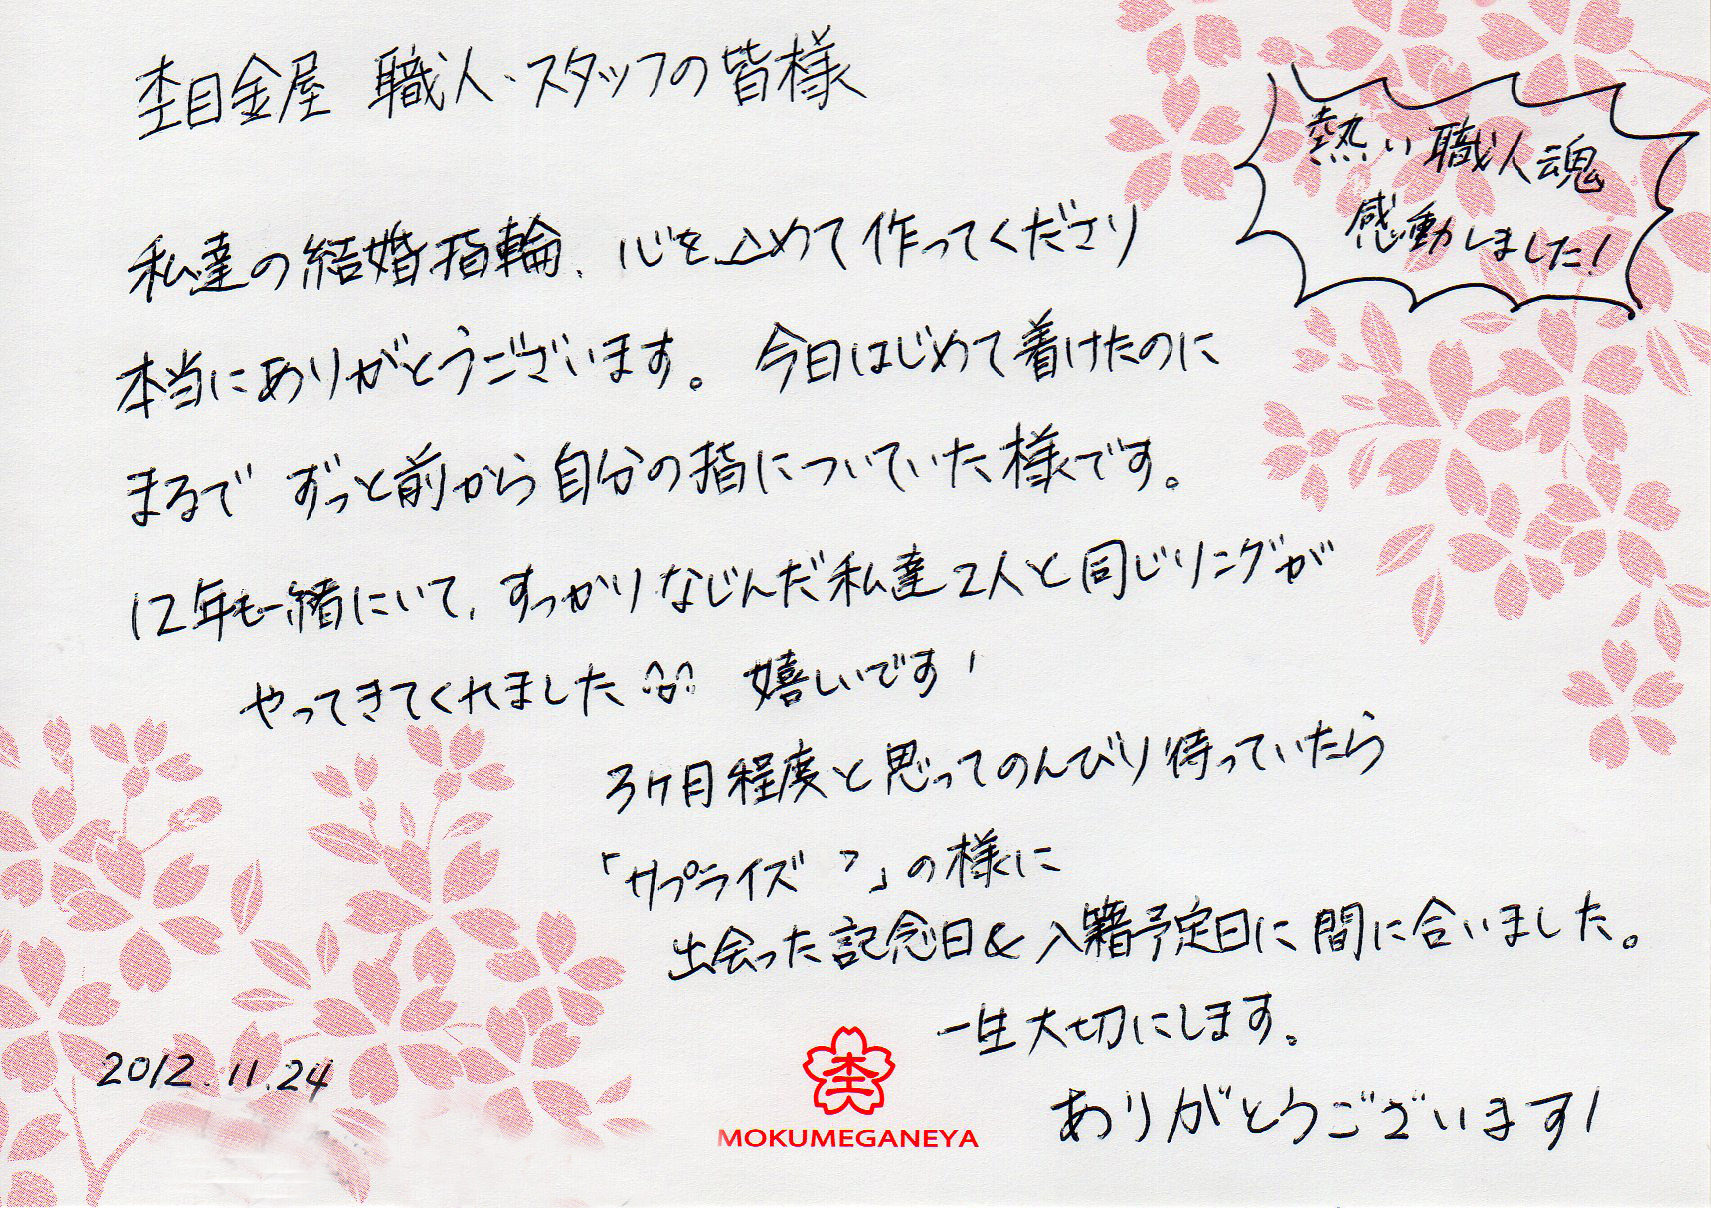 杢目金屋 職人・スタッフの皆様
熱い職人魂
感動しました!
私達の結婚指輪、心を込めて作ってくださり
本当にありがとうございます。今日はじめて着けたのに
まるで ずっと前から自分の指についていた様です。
12年も一緒にいて、すっかりなじんだ私達2人と同じリングが
やってきてくれました^o^ 嬉しいです!
3ヶ月程度と思ってのんびり待っていたら
「サプライズ?」の様に
出会った記念日&入籍予定日に間に合いました。
一生大切にします。
ありがとうございます!
2012.11.24
杢
MOKUMEGANEYA